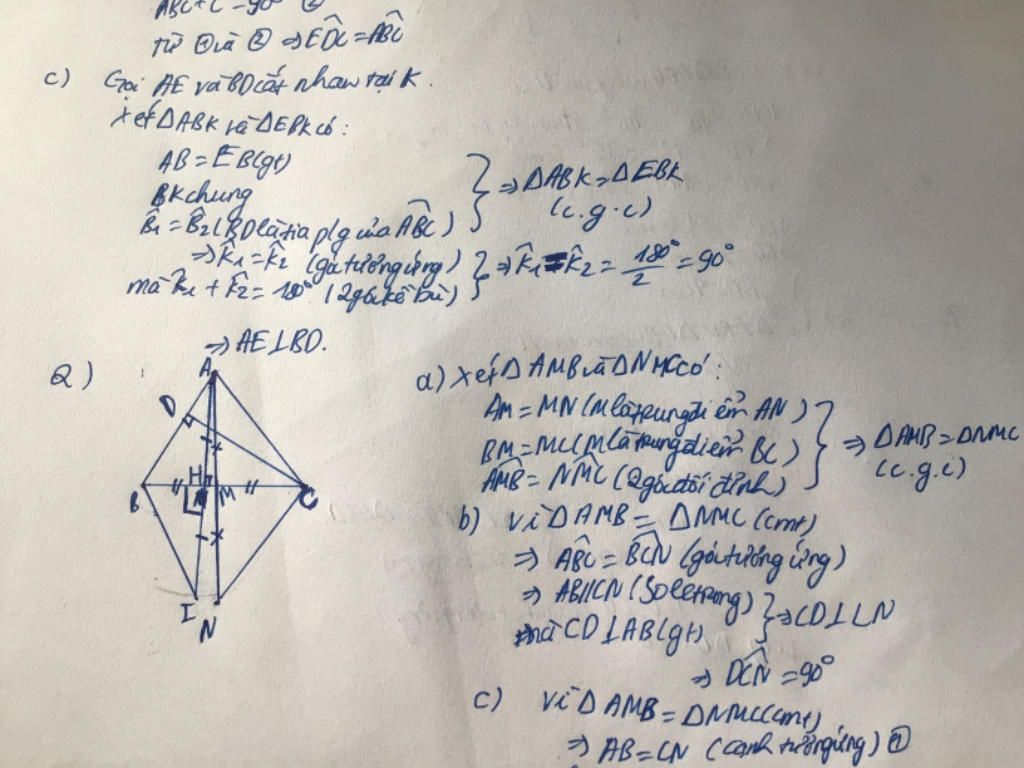 ABC + C = 90° ②
từ ① và ② ⇒ EDC = ABC
c) Gọi AE và BD cắt nhau tại K.
Xét ΔABK và ΔEBK có:
AB = EB (gt)
BK chung
B̂1 = B̂2 (BD là tia p/g của ABC)
⇒ ΔABK = ΔEBK
(c.g.c)
⇒ K̂1 = K̂2 (góc tương ứng)
mà K̂1 + K̂2 = 180° (2 góc kề bù)
⇒ K̂1 = K̂2 = 180°/2 = 90°
⇒ AE⊥BD.
2)
A
D
H
B
M
C
I
N
a) Xét ΔAMB và ΔNMC có:
AM = MN (M là trung điểm AN)
BM = MC (M là trung điểm BC)
AMB = NMC (2 góc đối đỉnh)
⇒ ΔAMB = ΔNMC
(c.g.c)
b) Vì ΔAMB = ΔNMC (cmt)
⇒ ABC = BCN (góc tương ứng)
⇒ AB//CN (So le trong)
mà CD⊥AB (gt)
⇒ CD⊥CN
⇒ DCN = 90°
c) Vì ΔAMB = ΔNMC (cmt)
⇒ AB = CN (cạnh tương ứng) ①